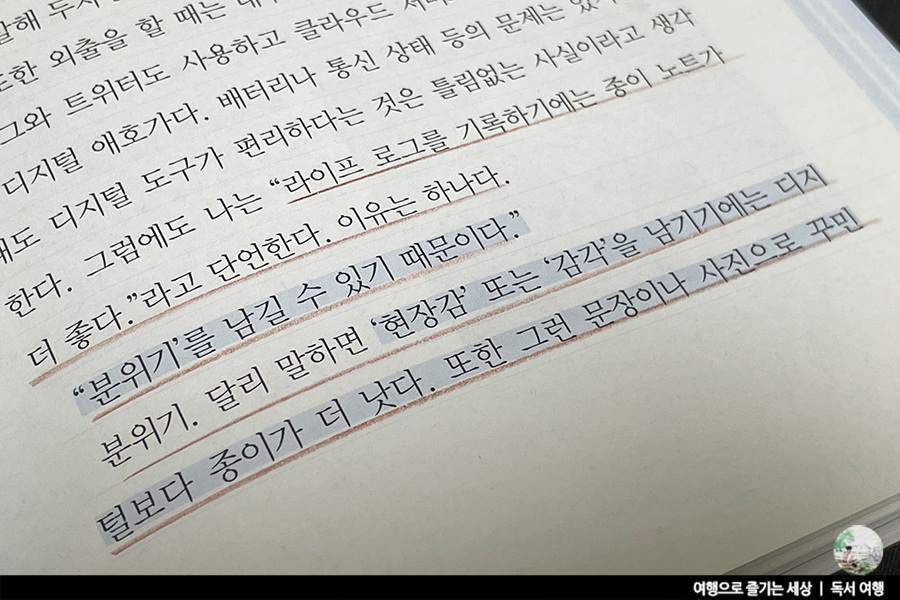 말해 두지
또한 외출을 할 때는
그와 트위터도 사용하고 클라우드
디지털 애호가다. 배터리나 통신 상태 등의 문제는
래도 디지털 도구가 편리하다는 것은 틀림없는 사실이라고 생각
한다. 그럼에도 나는 “라이프 로그를 기록하기에는 종이 노트가
더 좋다.”라고 단언한다. 이유는 하나다.
“분위기’를 남길 수 있기 때문이다.”
분위기. 달리 말하면 ‘현장감’ 또는 ‘감각’을 남기기에는 디지
털보다 종이가 더 낫다. 또한 그런 문장이나 사진으로 꾸민
여행으로 즐기는 세상 | 독서 여행